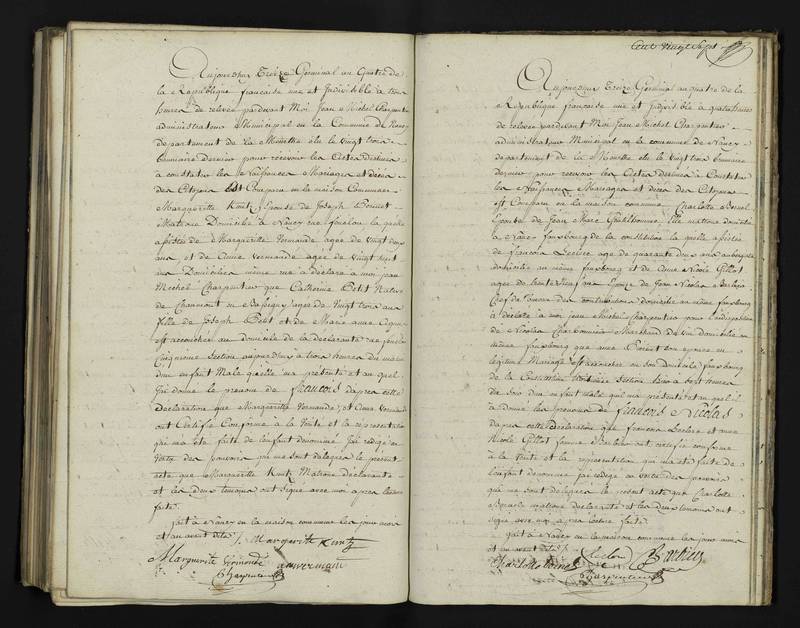 Aujourd'huy Treize Germinal an Quatre de
la Republique française une et Indivisible à trois
heures de relevée pardevant Moi Jean Michel Charpentier
administrateur Municipal en la Commune de Nancy
departement de la Meurthe élu le vingt trois
brumaire dernier pour recevoir les Actes destinés
à constater les Naissances Mariages et décès
des Citoyens Est Comparu en la maison Commune
Marguerite Kuntz Epouse de Joseph
Matrone Domiciliée à Nancy rue la quelle
assistée de Marguerite Vermande agée de vingt deux
ans et de Anne Vermande agée de vingt sept
ans Domiciliées même rue à déclaré à moi Jean
Michel Charpentier que Catherine Petit Native
de Chaumont en agée de Vingt trois ans
fille de Joseph Petit et de Marie anne
est accouchée au domicile de la déclarante rue
Cinquieme Section aujourd'huy à trois heures du matin
d'un enfant Male qu'elle m'a présenté et au quel
j'ai donné le prenom de François dapres cette
déclaration que Marguerite Vermande, et Anne Vermande
ont Certifié Conforme à la Vérité et la représentation
qui m'a été faite de l'enfant denommé j'ai redigé en
Vertu des pouvoirs qui me sont délégués le présent
acte que Marguerite Kuntz Matrone déclarante
et les deux temoins ont signé avec moi apres lecture
faite.
fait à Nancy en la maison commune les jour mois
et an avant dits /. Marguerite Kuntz
Marguerite
Charpentier
Cent vingt Sept
Aujourd'huy Treize Germinal an quatre de la
Republique française une et indivisible à quatre heures
de relevée pardevant Moi Jean Michel Charpentier
administrateur Municipal en la commune de Nancy
departement de la Meurthe élu le vingt trois brumaire
dernier pour recevoir les Actes destinés à Constater
les Naissances Mariages et décès des Citoyens
est Comparu en la maison commune Charlotte
Epouse de Jean Marc matrone domiciliée
à Nancy fauxbourg de la constitution la quelle assistée
de François Leclerc agé de quarante deux ans
domicilié au même fauxbourg et de Anne Nicole Gillot
agée de trente ans Epouse de Jean Nicolas Barbier
Chef de bureau des contributions domicilié au même fauxbourg
à déclaré à moi Jean Michel Charpentier que
de Nicolas Charbonnier Marchand de vin domicilié au
même fauxbourg
légitime Mariage est accouchée en son domicile fauxbourg
de la Constitution troisieme Section hier à sept heures
du soir d'un enfant male qu'elle m'a présenté et au quel j'ai
donné les prenoms de François Nicolas
dapres cette déclaration que François Leclerc et anne
Nicole Gillot femme Barbier ont certifié conforme
à la Vérité et la représentation qui m'a été faite de
l'enfant denommé jai redigé en vertu des pouvoirs
qui me sont délégués le présent acte que Charlotte
matrone déclarante et les deux temoins ont
signé avec moi apres lecture faite.
fait à Nancy en la maison commune les jour mois
et an avant dits /. Leclerc Barbier
Charlotte
Charpentier